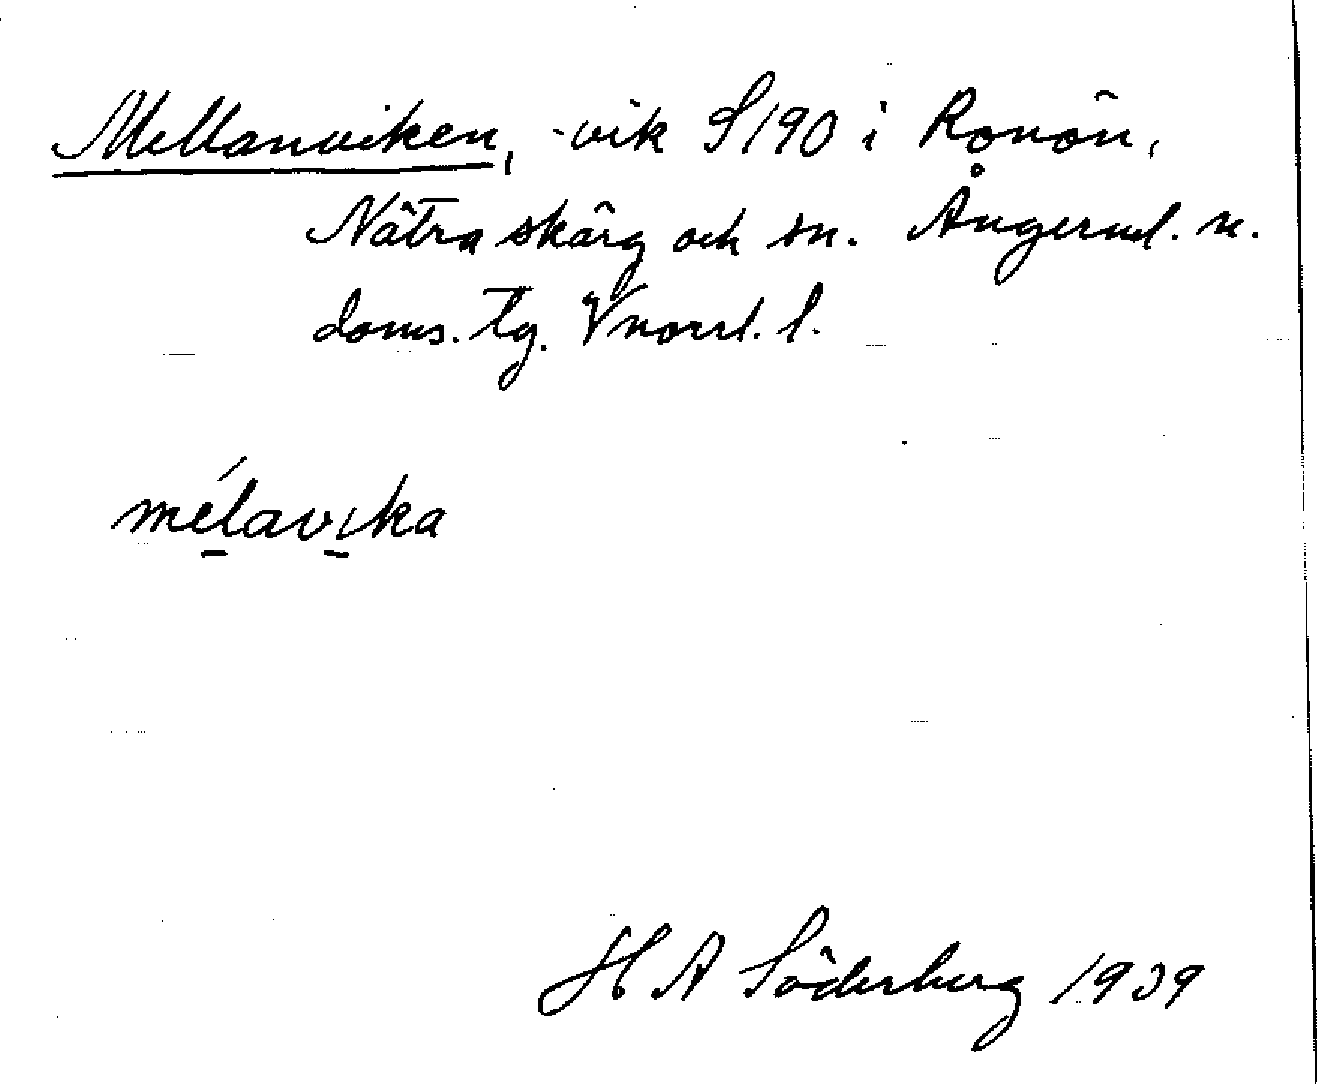 Mellanviken, -vik S190 i Ronön,
Nätra skärg och sn. Ångerml. n.
doms. tg. Vnorrl. l.
mélavika
H A Söderberg 1939